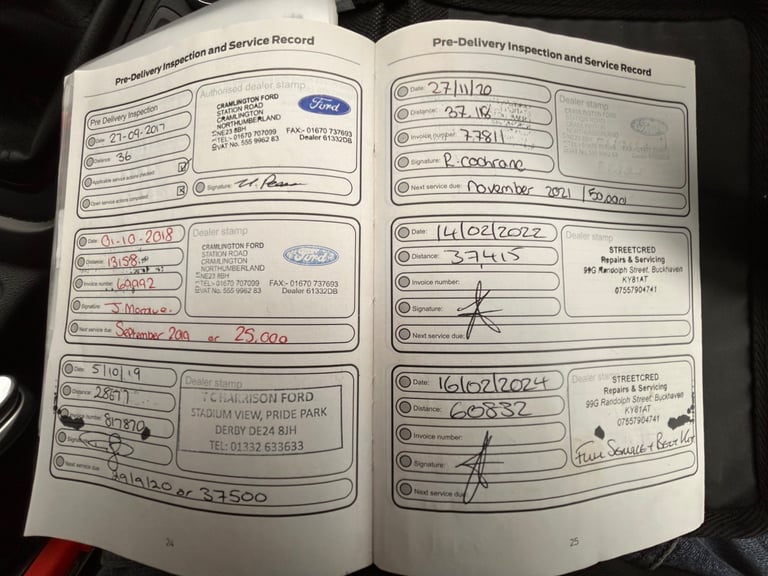 Pre-Delivery Inspection and Service Record
Pre Delivery Inspection
Date: 27-09-2017
Distance: 36
Applicable service actions checked
Open service actions completed
Authorised dealer stamp
CRAMLINGTON FORD
STATION ROAD
CRAMLINGTON
NORTHUMBERLAND
NE23 8BH
TEL:- 01670 707099 FAX:- 01670 737693
VAT No. 555 9962 63 Dealer 61332DB
Ford
Signature:
Date: 01-10-2018
Distance: 13158
Invoice number: 69992
Signature:
Next service due: September 2019 or 25,000
Dealer stamp
CRAMLINGTON FORD
STATION ROAD
CRAMLINGTON
NORTHUMBERLAND
NE23 8BH
TEL:- 01670 707099 FAX:- 01670 737693
VAT No. 555 9962 63 Dealer 61332DB
Ford
Date: 5/10/19
Distance: 28677
Invoice number: 817870
Signature:
Next service due: 29/9/20 or 37500
Dealer stamp
T C HARRISON FORD
STADIUM VIEW, PRIDE PARK
DERBY DE24 8JH
TEL: 01332 633633
24
Pre-Delivery Inspection and Service Record
Date: 27/11/20
Distance: 37,18
Invoice number: 77811
Signature: R. Cochrane
Next service due: November 2021 / 50,000
Dealer stamp
Date: 14/02/2022
Distance: 37415
Invoice number:
Signature:
Next service due:
Dealer stamp
STREETCRED
Repairs & Servicing
99G Randolph Street, Buckhaven
KY81AT
07557904741
Date: 16/02/2024
Distance: 60832
Invoice number:
Signature:
Next service due:
Dealer stamp
STREETCRED
Repairs & Servicing
99G Randolph Street, Buckhaven
KY81AT
07557904741
Full Service + Belt Kit
25